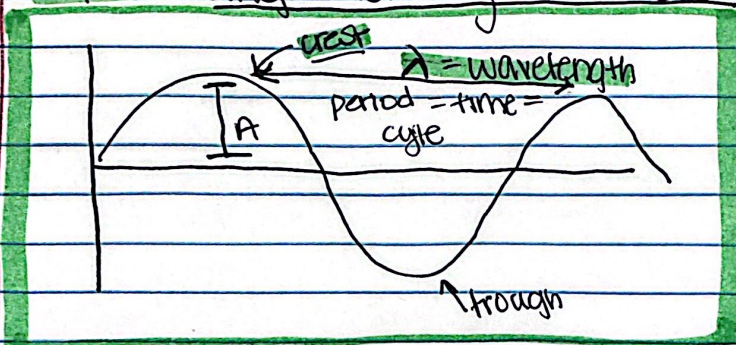 crest
λ = wavelength
period = time =
cycle
A
trough